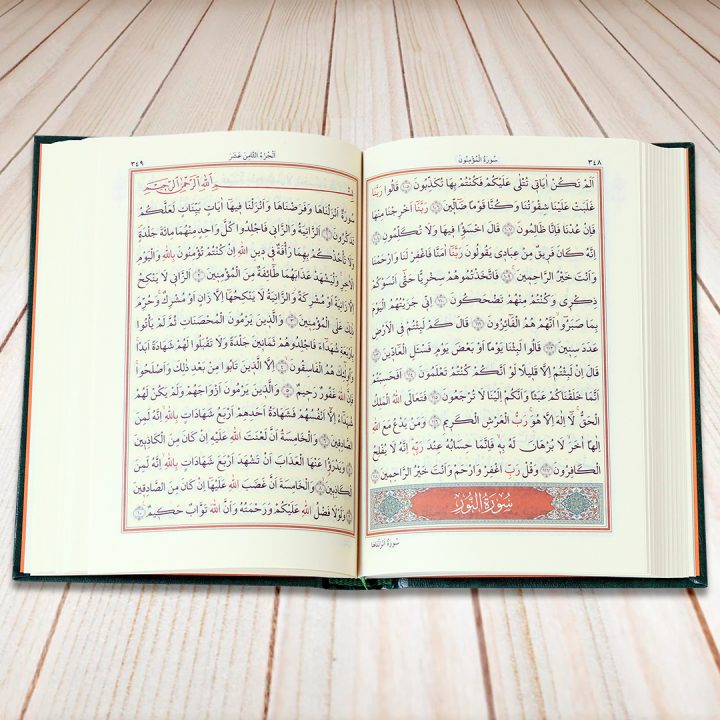 سُورَةُ الْمُؤْمِنُونَ ٣٤٨
اَلَمْ تَكُنْ اٰيَاتِي تُتْلٰى عَلَيْكُمْ فَكُنْتُمْ بِهَا تُكَذِّبُونَ ﴿١٠٥﴾ قَالُوا رَبَّنَا
غَلَبَتْ عَلَيْنَا شِقْوَتُنَا وَكُنَّا قَوْمًا ضَٓالِّينَ ﴿١٠٦﴾ رَبَّنَٓا اَخْرِجْنَا مِنْهَا
فَاِنْ عُدْنَا فَاِنَّا ظَالِمُونَ ﴿١٠٧﴾ قَالَ اخْسَؤُ۫ا فِيهَا وَلَا تُكَلِّمُونِ ﴿١٠٨﴾
اِنَّهُ كَانَ فَرِيقٌ مِنْ عِبَادِي يَقُولُونَ رَبَّنَٓا اٰمَنَّا فَاغْفِرْ لَنَا وَارْحَمْنَا
وَاَنْتَ خَيْرُ الرَّاحِمِينَ ﴿١٠٩﴾ فَاتَّخَذْتُمُوهُمْ سِخْرِيًّا حَتّٰٓى اَنْسَوْكُمْ
ذِكْرِي وَكُنْتُمْ مِنْهُمْ تَضْحَكُونَ ﴿١١٠﴾ اِنِّي جَزَيْتُهُمُ الْيَوْمَ
بِمَا صَبَرُٓوا اَنَّهُمْ هُمُ الْفَٓائِزُونَ ﴿١١١﴾ قَالَ كَمْ لَبِثْتُمْ فِي الْاَرْضِ
عَدَدَ سِنِينَ ﴿١١٢﴾ قَالُوا لَبِثْنَا يَوْمًا اَوْ بَعْضَ يَوْمٍ فَسْـَٔلِ الْعَٓادِّينَ ﴿١١٣﴾
قَالَ اِنْ لَبِثْتُمْ اِلَّا قَلِيلًا لَوْ اَنَّكُمْ كُنْتُمْ تَعْلَمُونَ ﴿١١٤﴾ اَفَحَسِبْتُمْ
اَنَّمَا خَلَقْنَاكُمْ عَبَثًا وَاَنَّكُمْ اِلَيْنَا لَا تُرْجَعُونَ ﴿١١٥﴾ فَتَعَالَى اللّٰهُ الْمَلِكُ
الْحَقُّ لَٓا اِلٰهَ اِلَّا هُوَ رَبُّ الْعَرْشِ الْكَرِيمِ ﴿١١٦﴾ وَمَنْ يَدْعُ مَعَ اللّٰهِ
اِلٰهًا اٰخَرَ لَا بُرْهَانَ لَهُ بِهِ فَاِنَّمَا حِسَابُهُ عِنْدَ رَبِّهِ اِنَّهُ لَا يُفْلِحُ
الْكَافِرُونَ ﴿١١٧﴾ وَقُلْ رَبِّ اغْفِرْ وَارْحَمْ وَاَنْتَ خَيْرُ الرَّاحِمِينَ ﴿١١٨﴾
سُورَةُ النُّورِ
سُورَةٌ اَنْزَلْنَاهَا
اَلْجُزْءُ الثَّامِنَ عَشَرَ ٣٤٩
بِسْمِ اللّٰهِ الرَّحْمٰنِ الرَّحِيمِ
سُورَةٌ اَنْزَلْنَاهَا وَفَرَضْنَاهَا وَاَنْزَلْنَا فِيهَٓا اٰيَاتٍ بَيِّنَاتٍ لَعَلَّكُمْ
تَذَكَّرُونَ ﴿١﴾ اَلزَّانِيَةُ وَالزَّانِي فَاجْلِدُوا كُلَّ وَاحِدٍ مِنْهُمَا مِائَةَ جَلْدَةٍ
وَلَا تَأْخُذْكُمْ بِهِمَا رَأْفَةٌ فِي دِينِ اللّٰهِ اِنْ كُنْتُمْ تُؤْمِنُونَ بِاللّٰهِ وَالْيَوْمِ
الْاٰخِرِ وَلْيَشْهَدْ عَذَابَهُمَا طَٓائِفَةٌ مِنَ الْمُؤْمِنِينَ ﴿٢﴾ اَلزَّانِي لَا يَنْكِحُ
اِلَّا زَانِيَةً اَوْ مُشْرِكَةً وَالزَّانِيَةُ لَا يَنْكِحُهَٓا اِلَّا زَانٍ اَوْ مُشْرِكٌ وَحُرِّمَ
ذٰلِكَ عَلَى الْمُؤْمِنِينَ ﴿٣﴾ وَالَّذِينَ يَرْمُونَ الْمُحْصَنَاتِ ثُمَّ لَمْ يَأْتُوا
بِاَرْبَعَةِ شُهَدَٓاءَ فَاجْلِدُوهُمْ ثَمَانِينَ جَلْدَةً وَلَا تَقْبَلُوا لَهُمْ شَهَادَةً اَبَدًا
وَاُو۬لٰٓئِكَ هُمُ الْفَاسِقُونَ ﴿٤﴾ اِلَّا الَّذِينَ تَابُوا مِنْ بَعْدِ ذٰلِكَ وَاَصْلَحُوا
فَاِنَّ اللّٰهَ غَفُورٌ رَحِيمٌ ﴿٥﴾ وَالَّذِينَ يَرْمُونَ اَزْوَاجَهُمْ وَلَمْ يَكُنْ لَهُمْ
شُهَدَٓاءُ اِلَّٓا اَنْفُسُهُمْ فَشَهَادَةُ اَحَدِهِمْ اَرْبَعُ شَهَادَاتٍ بِاللّٰهِ اِنَّهُ لَمِنَ
الصَّادِقِينَ ﴿٦﴾ وَالْخَامِسَةُ اَنَّ لَعْنَتَ اللّٰهِ عَلَيْهِ اِنْ كَانَ مِنَ الْكَاذِبِينَ
﴿٧﴾ وَيَدْرَؤُ۬ا عَنْهَا الْعَذَابَ اَنْ تَشْهَدَ اَرْبَعَ شَهَادَاتٍ بِاللّٰهِ اِنَّهُ لَمِنَ
الْكَاذِبِينَ ﴿٨﴾ وَالْخَامِسَةَ اَنَّ غَضَبَ اللّٰهِ عَلَيْهَٓا اِنْ كَانَ مِنَ الصَّادِقِينَ
﴿٩﴾ وَلَوْلَا فَضْلُ اللّٰهِ عَلَيْكُمْ وَرَحْمَتُهُ وَاَنَّ اللّٰهَ تَوَّابٌ حَكِيمٌ ﴿١٠﴾